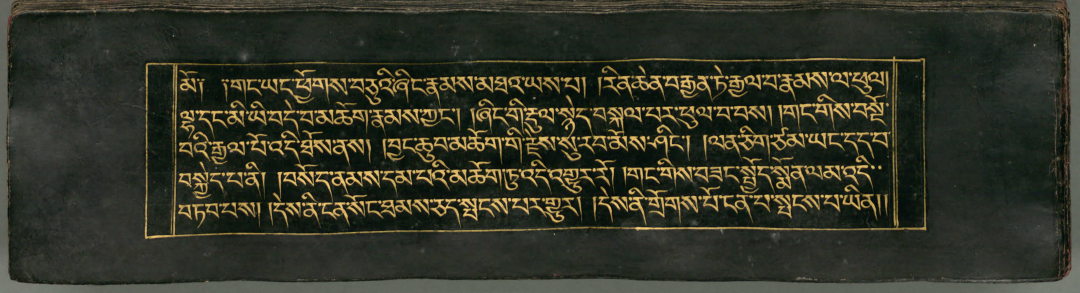 མོ་༑ ༑གང་ཡང་ཕྱོགས་བཅུའི་ཞིང་རྣམས་མཐའ་ཡས་པ། །རིན་ཆེན་བརྒྱན་ཏེ་རྒྱལ་བ་རྣམས་ལ་ཕུལ།
ལྷ་དང་མི་ཡི་བདེ་བ་མཆོག་རྣམས་ཀྱང་། །ཞིང་གི་རྡུལ་སྙེད་བསྐལ་པར་ཕུལ་བ་བས། །གང་གིས་བསྔོ་
བའི་རྒྱལ་པོ་འདི་ཐོས་ནས། །བྱང་ཆུབ་མཆོག་གི་རྗེས་སུ་རབ་མོས་ཤིང་། །ལན་ཅིག་ཙམ་ཡང་དད་པ་
བསྐྱེད་པ་ནི། །བསོད་ནམས་དམ་པའི་མཆོག་ཏུ་འདི་འགྱུར་རོ། །གང་གིས་བཟང་སྤྱོད་སྨོན་ལམ་འདི་་
བཏབ་པས། །དེས་ནི་ངན་སོང་ཐམས་ཅད་སྤངས་པར་གྱུར། །དེས་ནི་གྲོགས་པོ་ངན་པ་སྤངས་པ་ཡིན།།